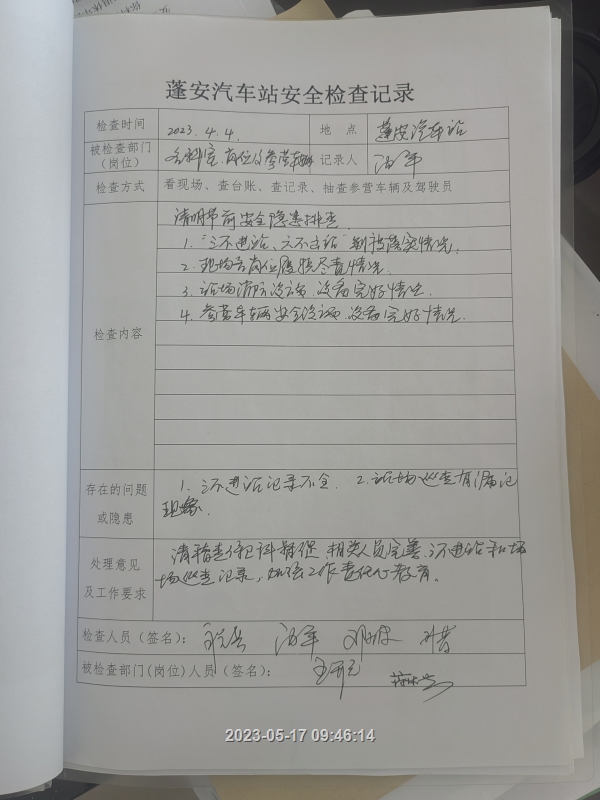 蓬安汽车站安全检查记录
检查时间 2023.4.4. 地 点 蓬安汽车站
被检查部门 各科室、岗位及参营车辆 记录人
（岗位）
检查方式 看现场、查台账、查记录、抽查参营车辆及驾驶员
清明节前安全隐患排查
1."三不进站、六不出站"制度落实情况.
2.现场各岗位履职尽责情况.
3.站场消防设施、设备完好情况.
检查内容 4.参营车辆安全设施、设备完好情况.
存在的问题 1.三不进站记录不全. 2.站场巡查有漏记
或隐患 现象.
处理意见 请稽查保卫科督促相关人员完善三不进站和站
及工作要求 场巡查记录，加强工作责任心教育。
检查人员（签名）：
被检查部门(岗位)人员（签名）：
2023-05-17 09:46:14